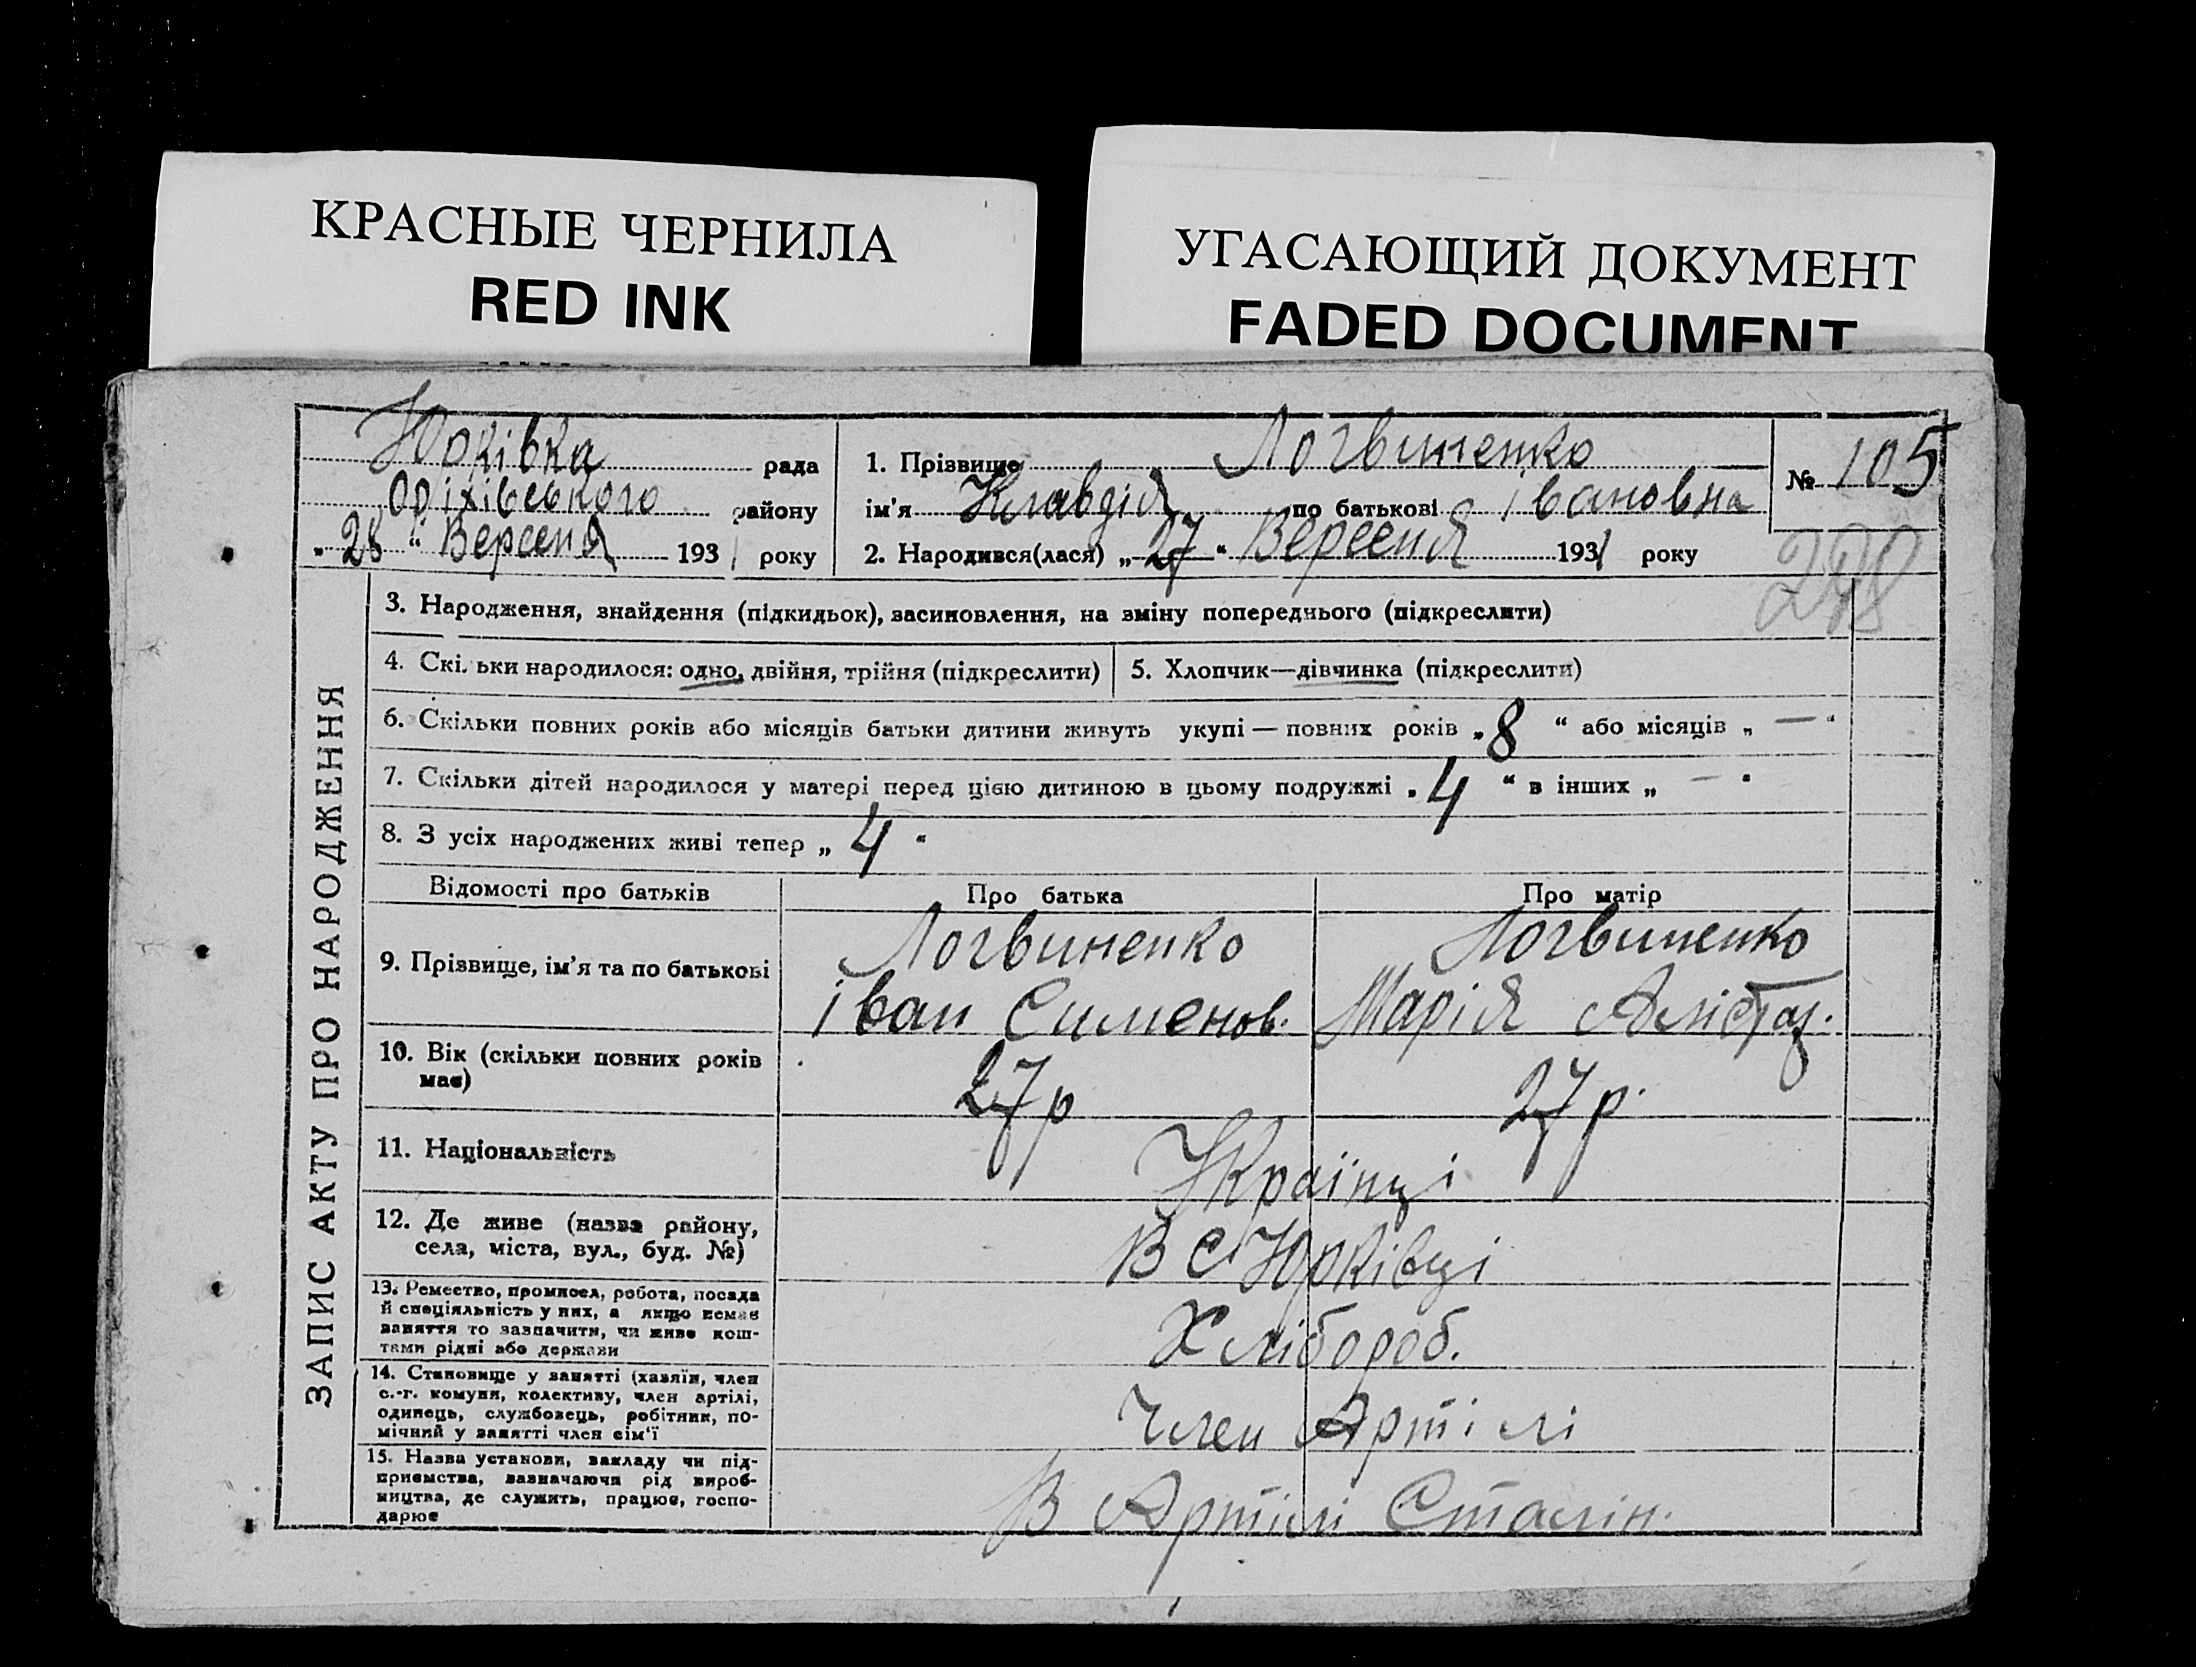 КРАСНЫЕ ЧЕРНИЛА
RED INK
УГАСАЮЩИЙ ДОКУМЕНТ
FADED DOCUMENT
Юрківка рада
Оріхівського району
„ 28 “ Вересня 1931 року
1. Прізвище Логвиненко
ім'я Клавдія по батькові івановна
2. Народився(лася) „ 27 “ Вересня 1931 року
№ 105
ЗАПИС АКТУ ПРО НАРОДЖЕННЯ
3. Народження, знайдення (підкидьок), засиновлення, на зміну попереднього (підкреслити)
4. Скільки народилося: одно, двійня, трійня (підкреслити)
5. Хлопчик—дівчинка (підкреслити)
6. Скільки повних років або місяців батьки дитини живуть укупі — повних років „ 8 “ або місяців „ — “
7. Скільки дітей народилося у матері перед цією дитиною в цьому подружжі „ 4 “ в інших „ — “
8. З усіх народжених живі тепер „ 4 “
Відомості про батьків Про батька Про матір
9. Прізвище, ім'я та по батькові
Логвиненко
іван Сименов.
Логвиненко
Марія
10. Вік (скільки повних років
має)
27р 27р.
11. Національність
Українці
12. Де живе (назва району,
села, міста, вул., буд. №)
В С Юрківці
13. Ремество, промисел, робота, посада
й спеціяльність у них, а якщо немає
заняття то зазначити, чи живе кош-
тами рідні або держави
Хлібороб.
14. Становище у занятті (хазяїн, член
с.-г. комуни, колективу, член артілі,
одинець, службовець, робітник, по-
мічний у занятті член сім'ї
Член Артілі
15. Назва установи, закладу чи під-
приємства, зазначаючи рід вироб-
ництва, де служить, працює, госпо-
дарює
В Артілі Сталін.